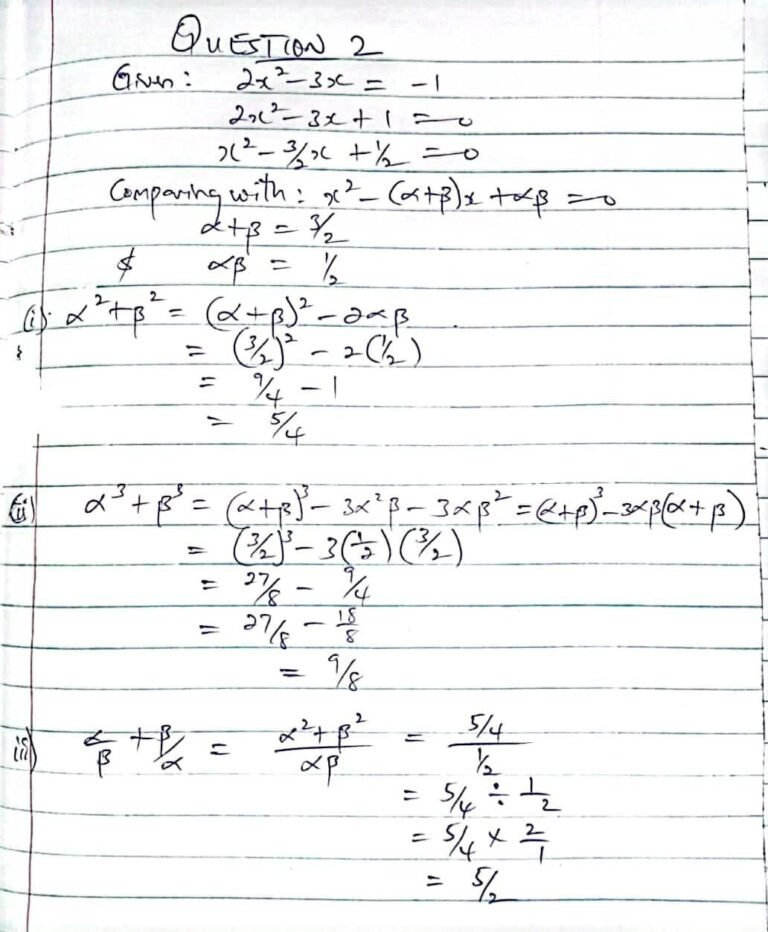 QUESTION 2
Given: 2x² - 3x = -1
2x² - 3x + 1 = 0
x² - 3/2x + 1/2 = 0
Comparing with: x² - (α+β)x + αβ = 0
α+β = 3/2
& αβ = 1/2
(i) α² + β² = (α+β)² - 2αβ
= (3/2)² - 2(1/2)
= 9/4 - 1
= 5/4
(ii) α³ + β³ = (α+β)³ - 3α²β - 3αβ² = (α+β)³ - 3αβ(α+β)
= (3/2)³ - 3(1/2)(3/2)
= 27/8 - 9/4
= 27/8 - 18/8
= 9/8
iii) α/β + β/α = (α² + β²)/αβ = (5/4)/(1/2)
= 5/4 ÷ 1/2
= 5/4 × 2/1
= 5/2